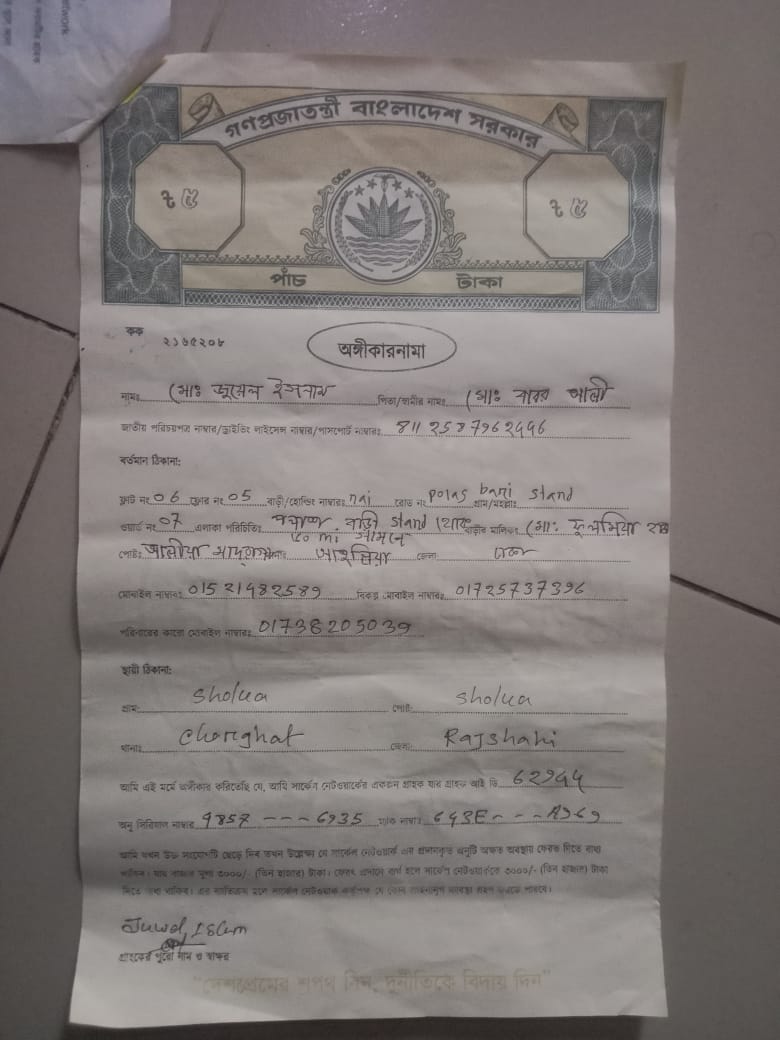 গণপ্রজাতন্ত্রী বাংলাদেশ সরকার
৳ ৫ ৳ ৫
পাঁচ টাকা
কক
২১৬৫২০৮
অঙ্গীকারনামা
নামঃ মোঃ জুয়েল ইসলাম পিতা/স্বামীর নামঃ মোঃ বাবর আলী
জাতীয় পরিচয়পত্র নাম্বার/ড্রাইভিং লাইসেন্স নাম্বার/পাসপোর্ট নাম্বারঃ 8112587962446
বর্তমান ঠিকানা:
ফ্লাট নং 06 ফ্লোর নং 05 বাড়ী/হোল্ডিং নাম্বারঃ nai রোড নং polas bari stand গ্রাম/মহল্লাঃ
ওয়ার্ড নং 07 এলাকা পরিচিতিঃ পলাশ বাড়ী stand থেকে 50 mi সামনে বাড়ীর মালিকঃ মোঃ ফুলমিয়া
পোষ্টঃ আলীয়া মাদ্রাসা থানাঃ আশুলিয়া জেলাঃ ঢাকা
মোবাইল নাম্বারঃ 01521482589 বিকল্প মোবাইল নাম্বারঃ 01725737396
পরিবারের কারো মোবাইল নাম্বারঃ 01738205039
স্থায়ী ঠিকানা:
গ্রামঃ Sholua পোষ্টঃ Sholua
থানাঃ Charghat জেলাঃ Rajshahi
আমি এই মর্মে অঙ্গীকার করিতেছি যে, আমি সার্কেল নেটওয়ার্কের একজন গ্রাহক যার গ্রাহক আই ডি 62944
অনু সিরিয়াল নাম্বার 485F --- 6935 ম্যাক নাম্বারঃ 643E - - - A969
আমি যখন উক্ত সংযোগটি ছেড়ে দিব তখন উল্লেখ্য যে সার্কেল নেটওয়ার্ক এর প্রদানকৃত অনুটি অক্ষত অবস্থায় ফেরত দিতে বাধ্য
থাকিব। যার বাজার মূল্য ৩০০০/- (তিন হাজার) টাকা। ফেরৎ প্রদানে ব্যর্থ হলে সার্কেল নেটওয়ার্ককে ৩০০০/- (তিন হাজার) টাকা
দিতে বাধ্য থাকিব। এর ব্যতিক্রম হলে সার্কেল নেটওয়ার্ক কর্তৃপক্ষ যে কোন আইনানুগ ব্যবস্থা গ্রহণ করতে পারবে।
Juwel Islam
গ্রাহকের পুরো নাম ও স্বাক্ষর
"দেশপ্রেমের শপথ নিন, দুর্নীতিকে বিদায় দিন"